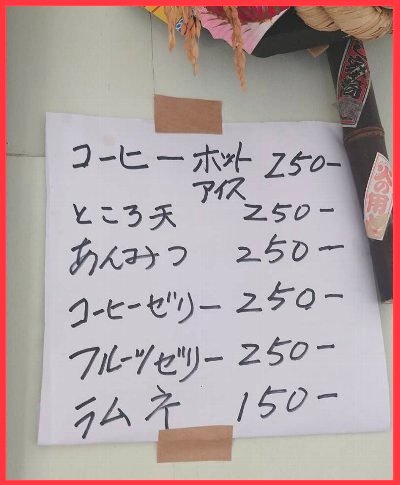 コーヒー ホット 250ー
アイス
ところ天 250ー
あんみつ 250ー
コーヒーゼリー 250ー
フルーツゼリー 250ー
ラムネ 150ー
火の用